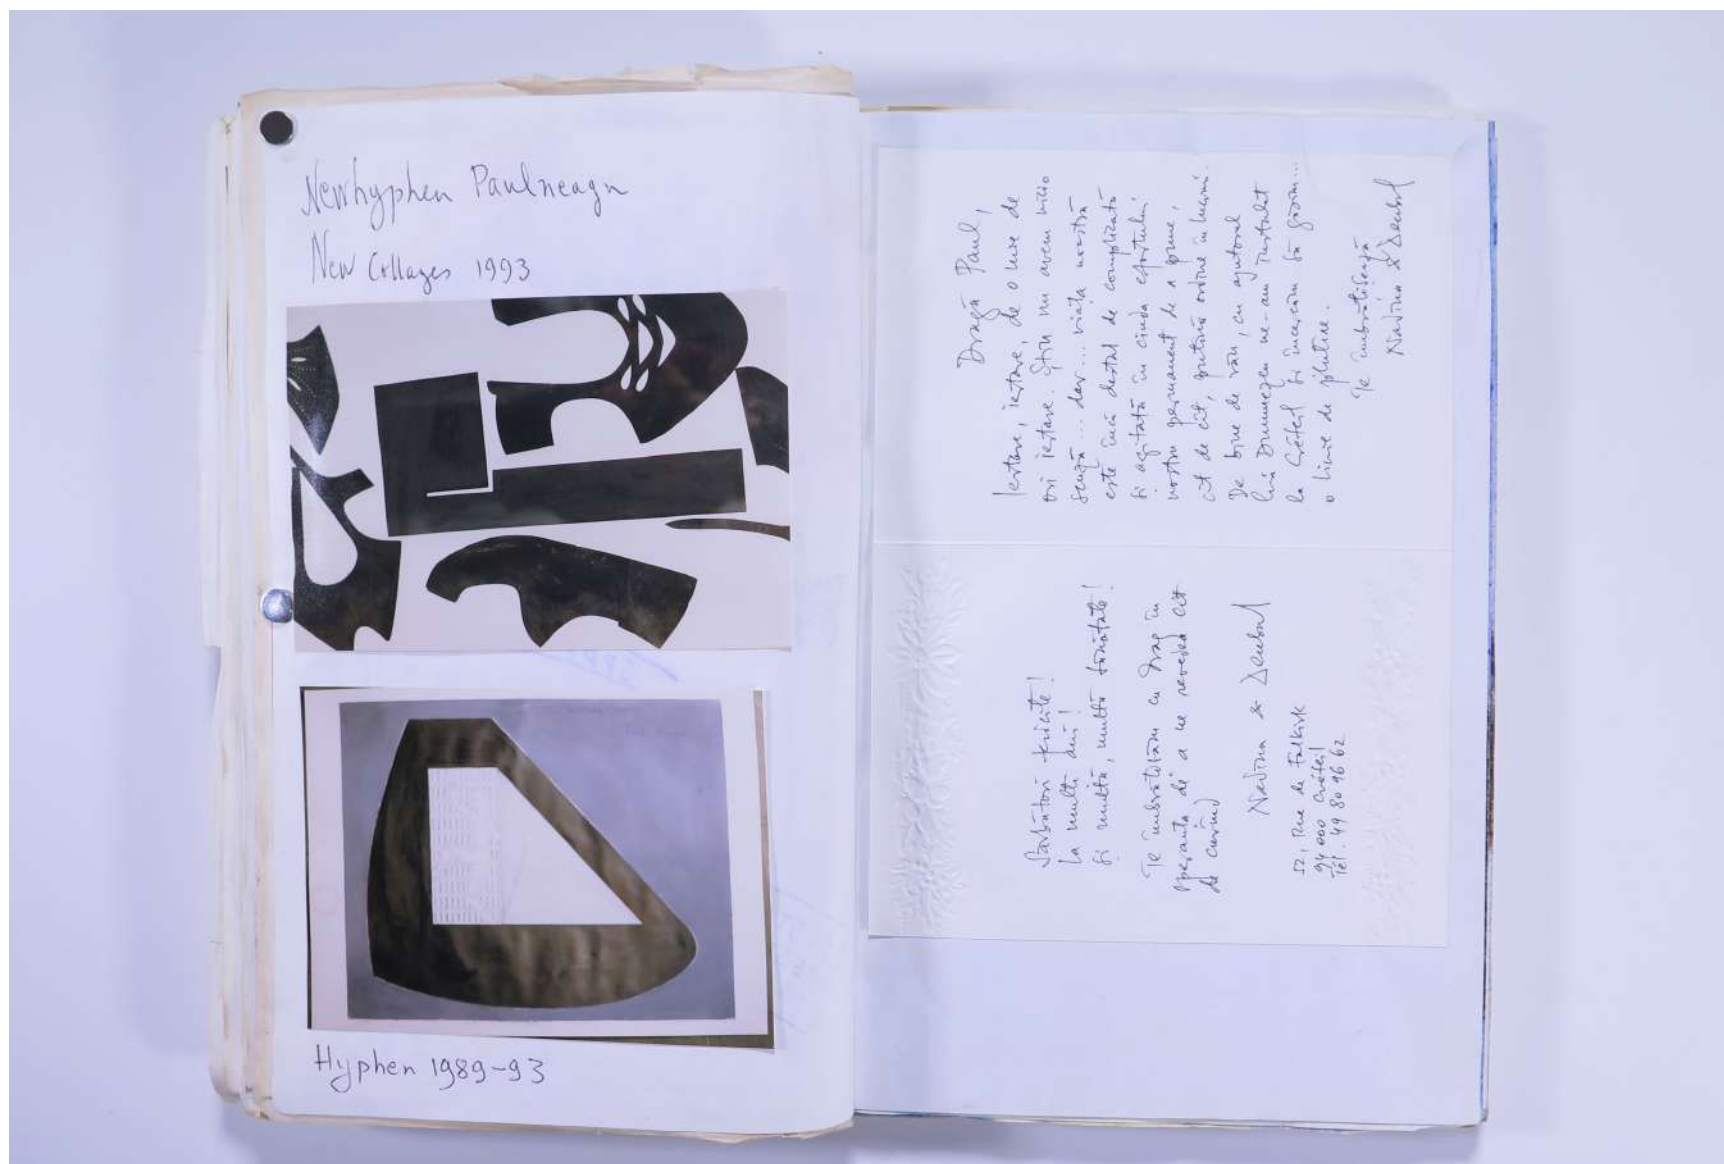 Newhyphen Paulneagu
New Collages 1993
Hyphen 1989-93
Dragă Paul,
Iertare, iertare, de o mie de
ori iertare. Știu nu avem nicio
scuză... dar... viața noastră
este încă destul de complicată
și agitată în ciuda efortului
nostru permanent de a pune,
cît de cît, puțină ordine în lucruri.
De bine de rău, cu ajutorul
lui Dumnezeu ne-am instalat
la Créteil și încercăm să găsim...
o linie de plutire.
Te îmbrățișează
Nadina &
Sărbători fericite!
La mulți ani!
și multă, multă sănătate!
Te îmbrățișăm cu drag în
speranța de a ne revedea cît
de curînd
Nadina &
52, Rue de Falkirk
94000 Créteil
Tél. 49 80 96 62